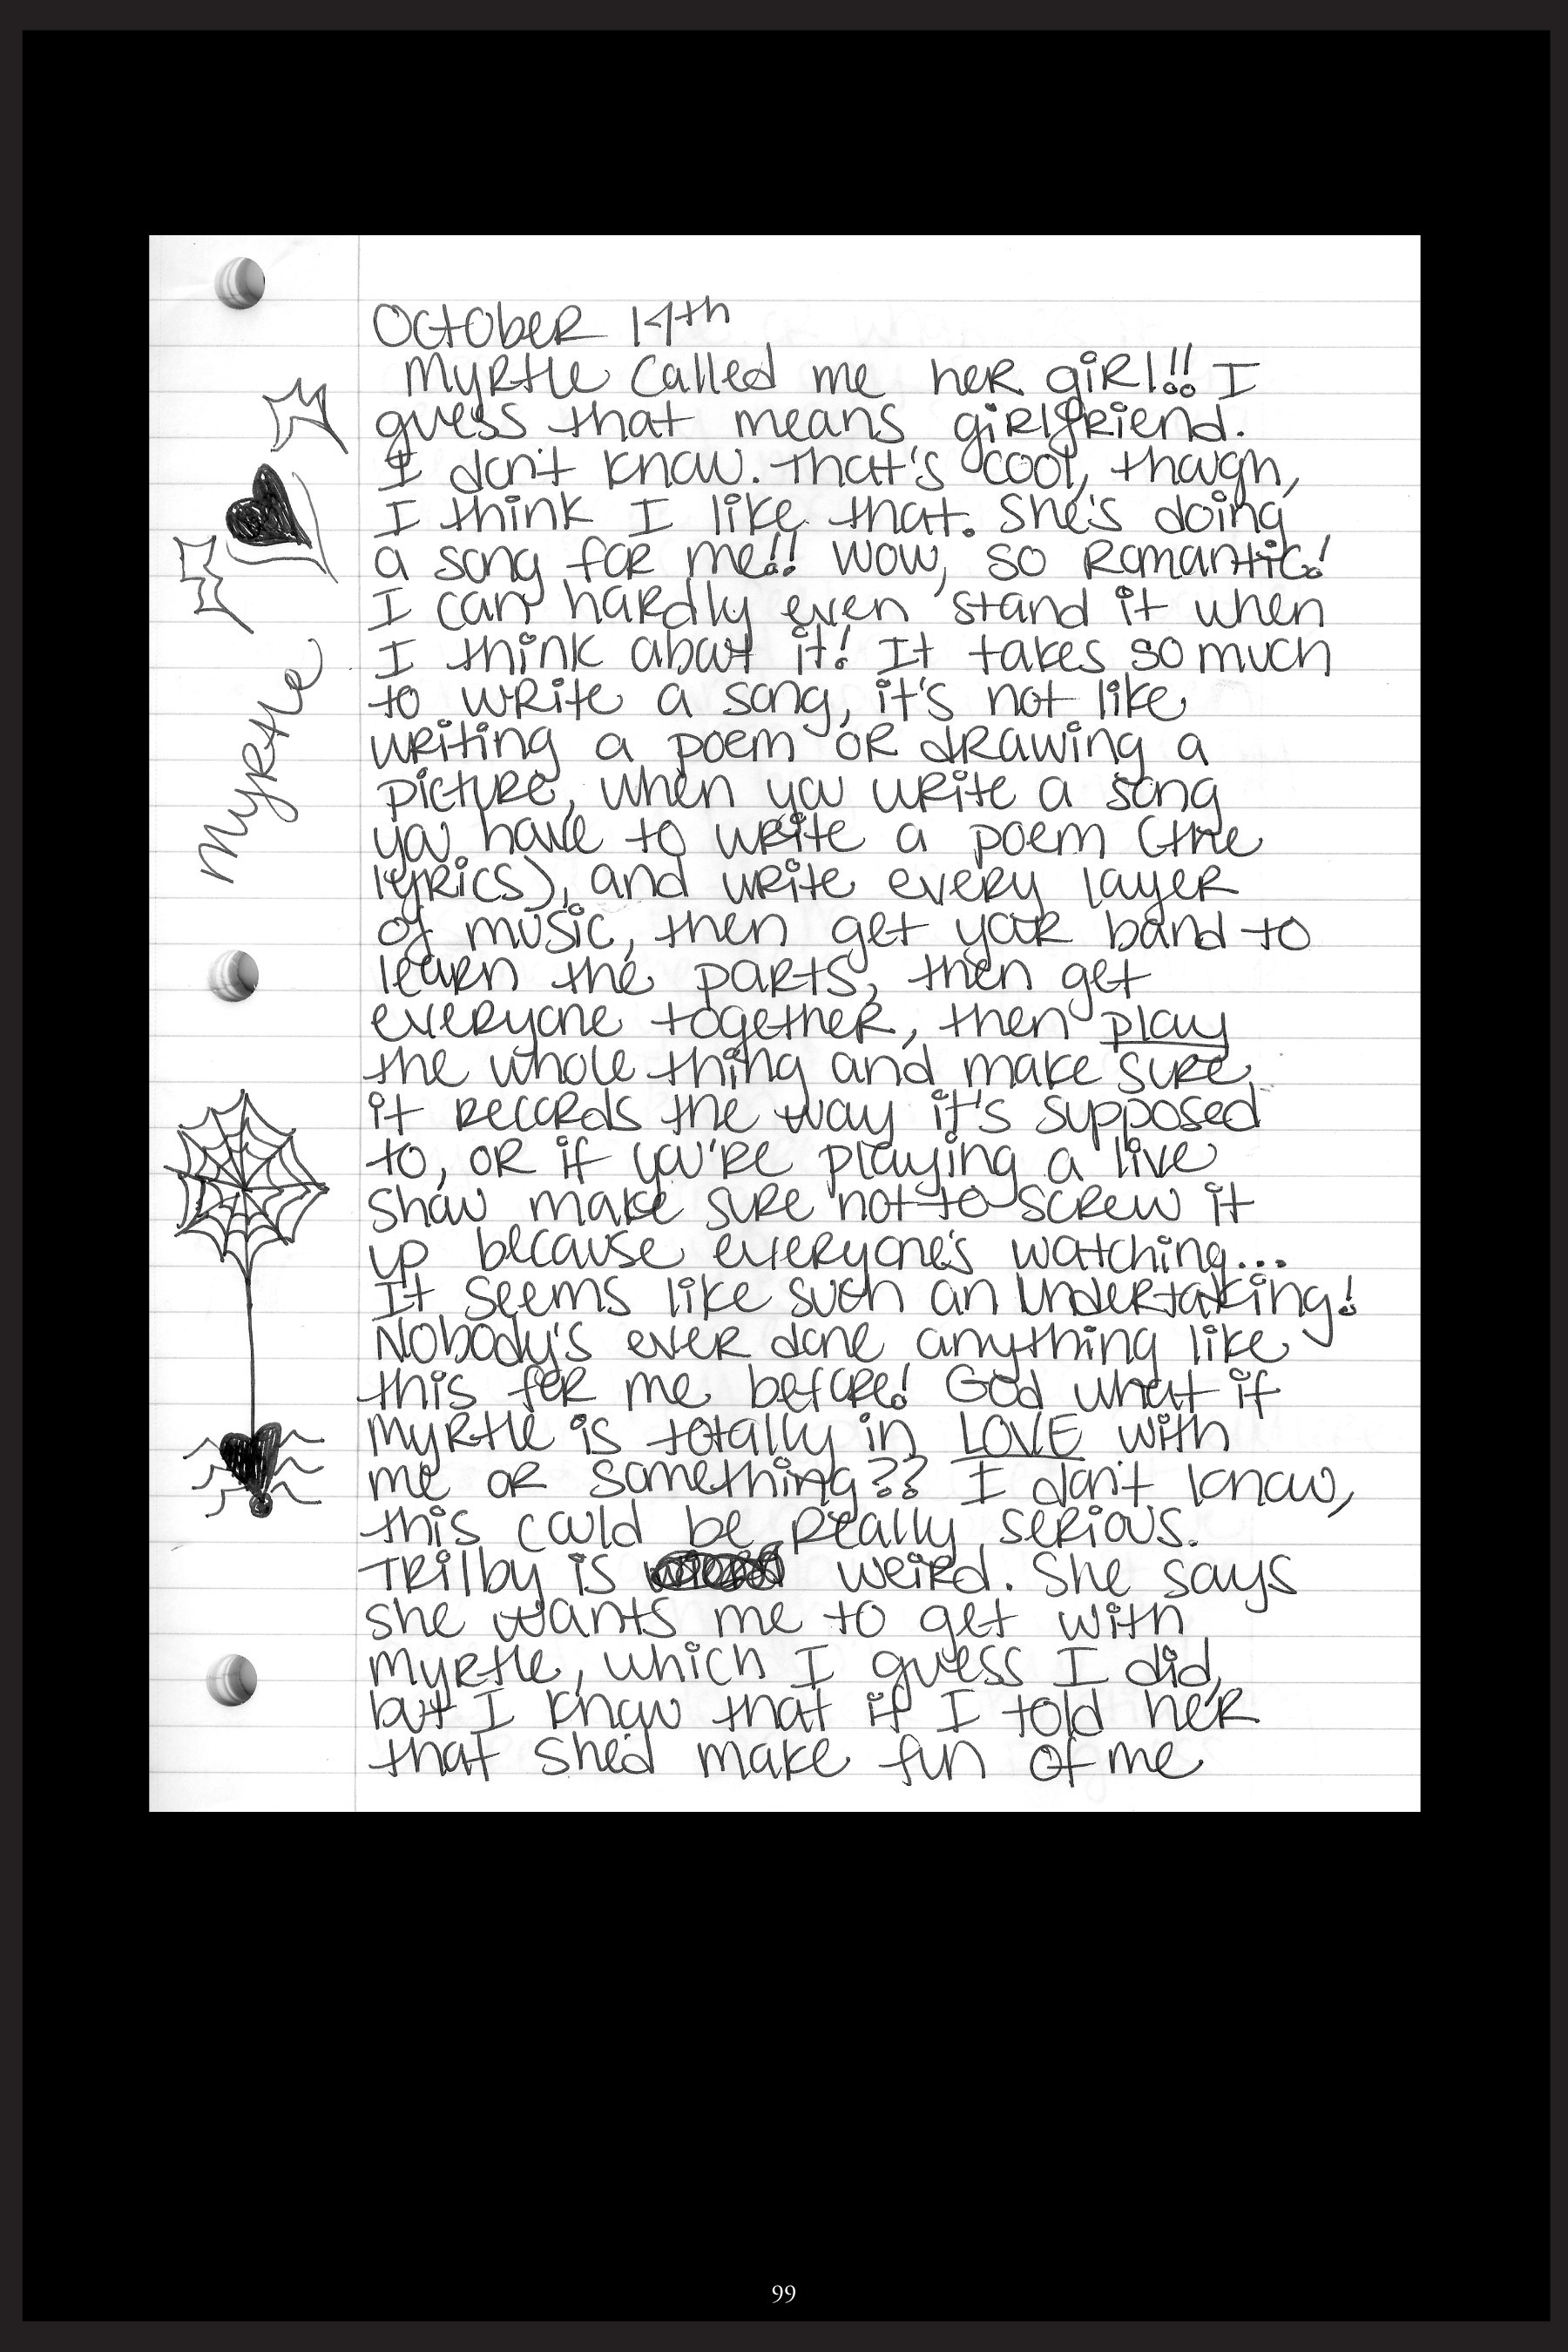 October 14th
Myrtle called me her girl!! I
guess that means girlfriend.
I don't know. That's cool, though,
I think I like that. She's doing
a song for me!! Wow, so romantic!
I can hardly even stand it when
I think about it! It takes so much
to write a song, it's not like
writing a poem or drawing a
picture, when you write a song
you have to write a poem (the
lyrics), and write every layer
of music, then get your band to
learn the parts, then get
everyone together, then play
the whole thing and make sure
it records the way it's supposed
to, or if you're playing a live
show make sure not to screw it
up because everyone's watching...
It seems like such an undertaking!
Nobody's ever done anything like
this for me before! God what if
Myrtle is totally in LOVE with
me or something?? I don't know,
this could be really serious.
Trilby is weird. She says
she wants me to get with
Myrtle, which I guess I did,
but I know that if I told her
that she'd make fun of me
Myrtle
99